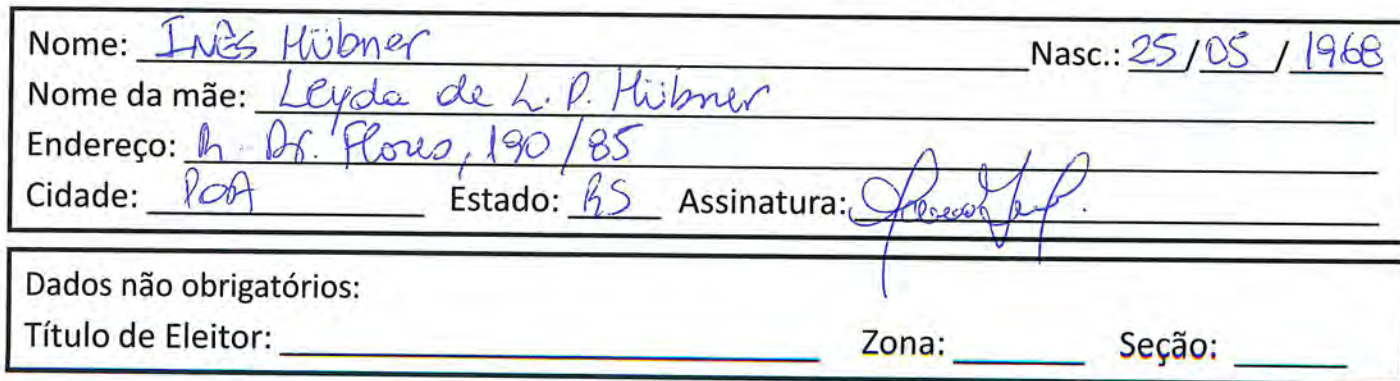 Nome: Inês Hübner Nasc.: 25/05/1968
Nome da mãe: Leyda de L. P. Hübner
Endereço: R. Dr. Flores, 190/85
Cidade: POA Estado: RS Assinatura:
Dados não obrigatórios:
Título de Eleitor: Zona: Seção: